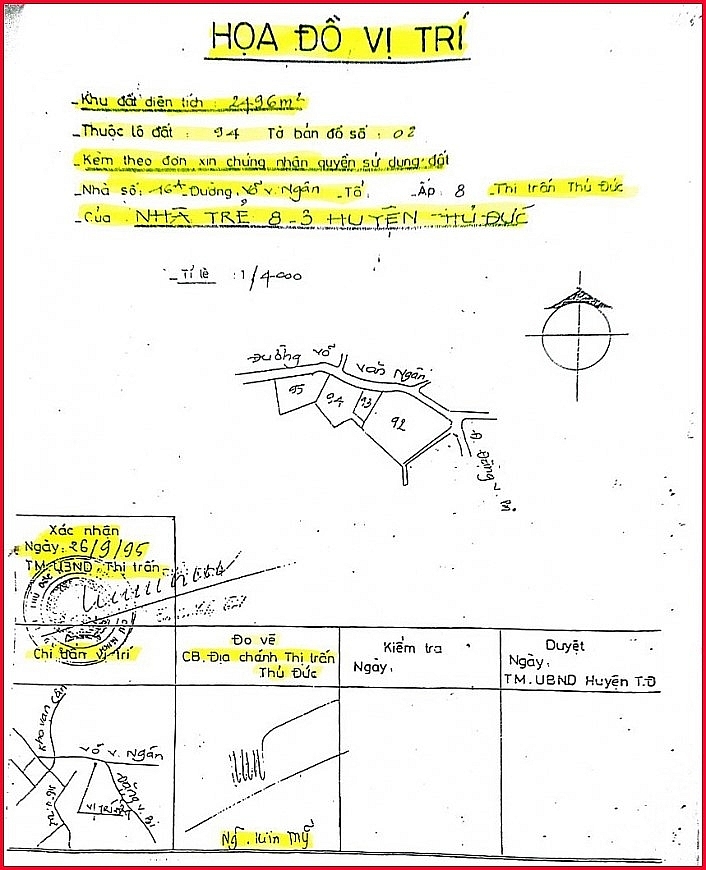 HỌA ĐỒ VỊ TRÍ
_Khu đất diện tích : 2496m²
_Thuộc lô đất : 94 Tờ bản đồ số : 02
_Kèm theo đơn xin chứng nhận quyền sử dụng đất
_Nhà số: 16A Đường: Võ V. Ngân _Tổ: _Ấp: 8 _Thị trấn Thủ Đức
_Của : NHÀ TRẺ 8-3 HUYỆN THỦ ĐỨC
_Tỉ lệ : 1/4000
Đường Võ Văn Ngân
95
94
93
92
Đ. Đặng V. Bi
Xác nhận
Ngày: 26/9/95
TM.UBND. Thị trấn
Chỉ dẫn vị trí
Đo vẽ
CB. Địa chánh Thị trấn
Thủ Đức
Kiểm tra
Ngày:
Duyệt
Ngày:
TM.UBND Huyện T.Đ
Kho Vạn Cân
Võ V. Ngân
Đặng V. Bi
VỊ TRÍ
Ng. Kim Mỹ